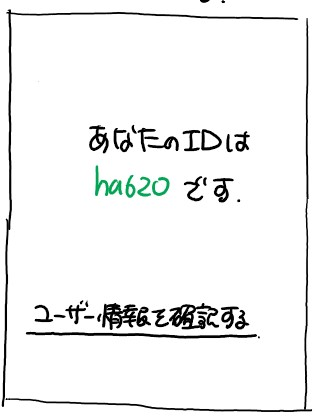 あなたのIDは
ha620 です.
ユーザー情報を確認する